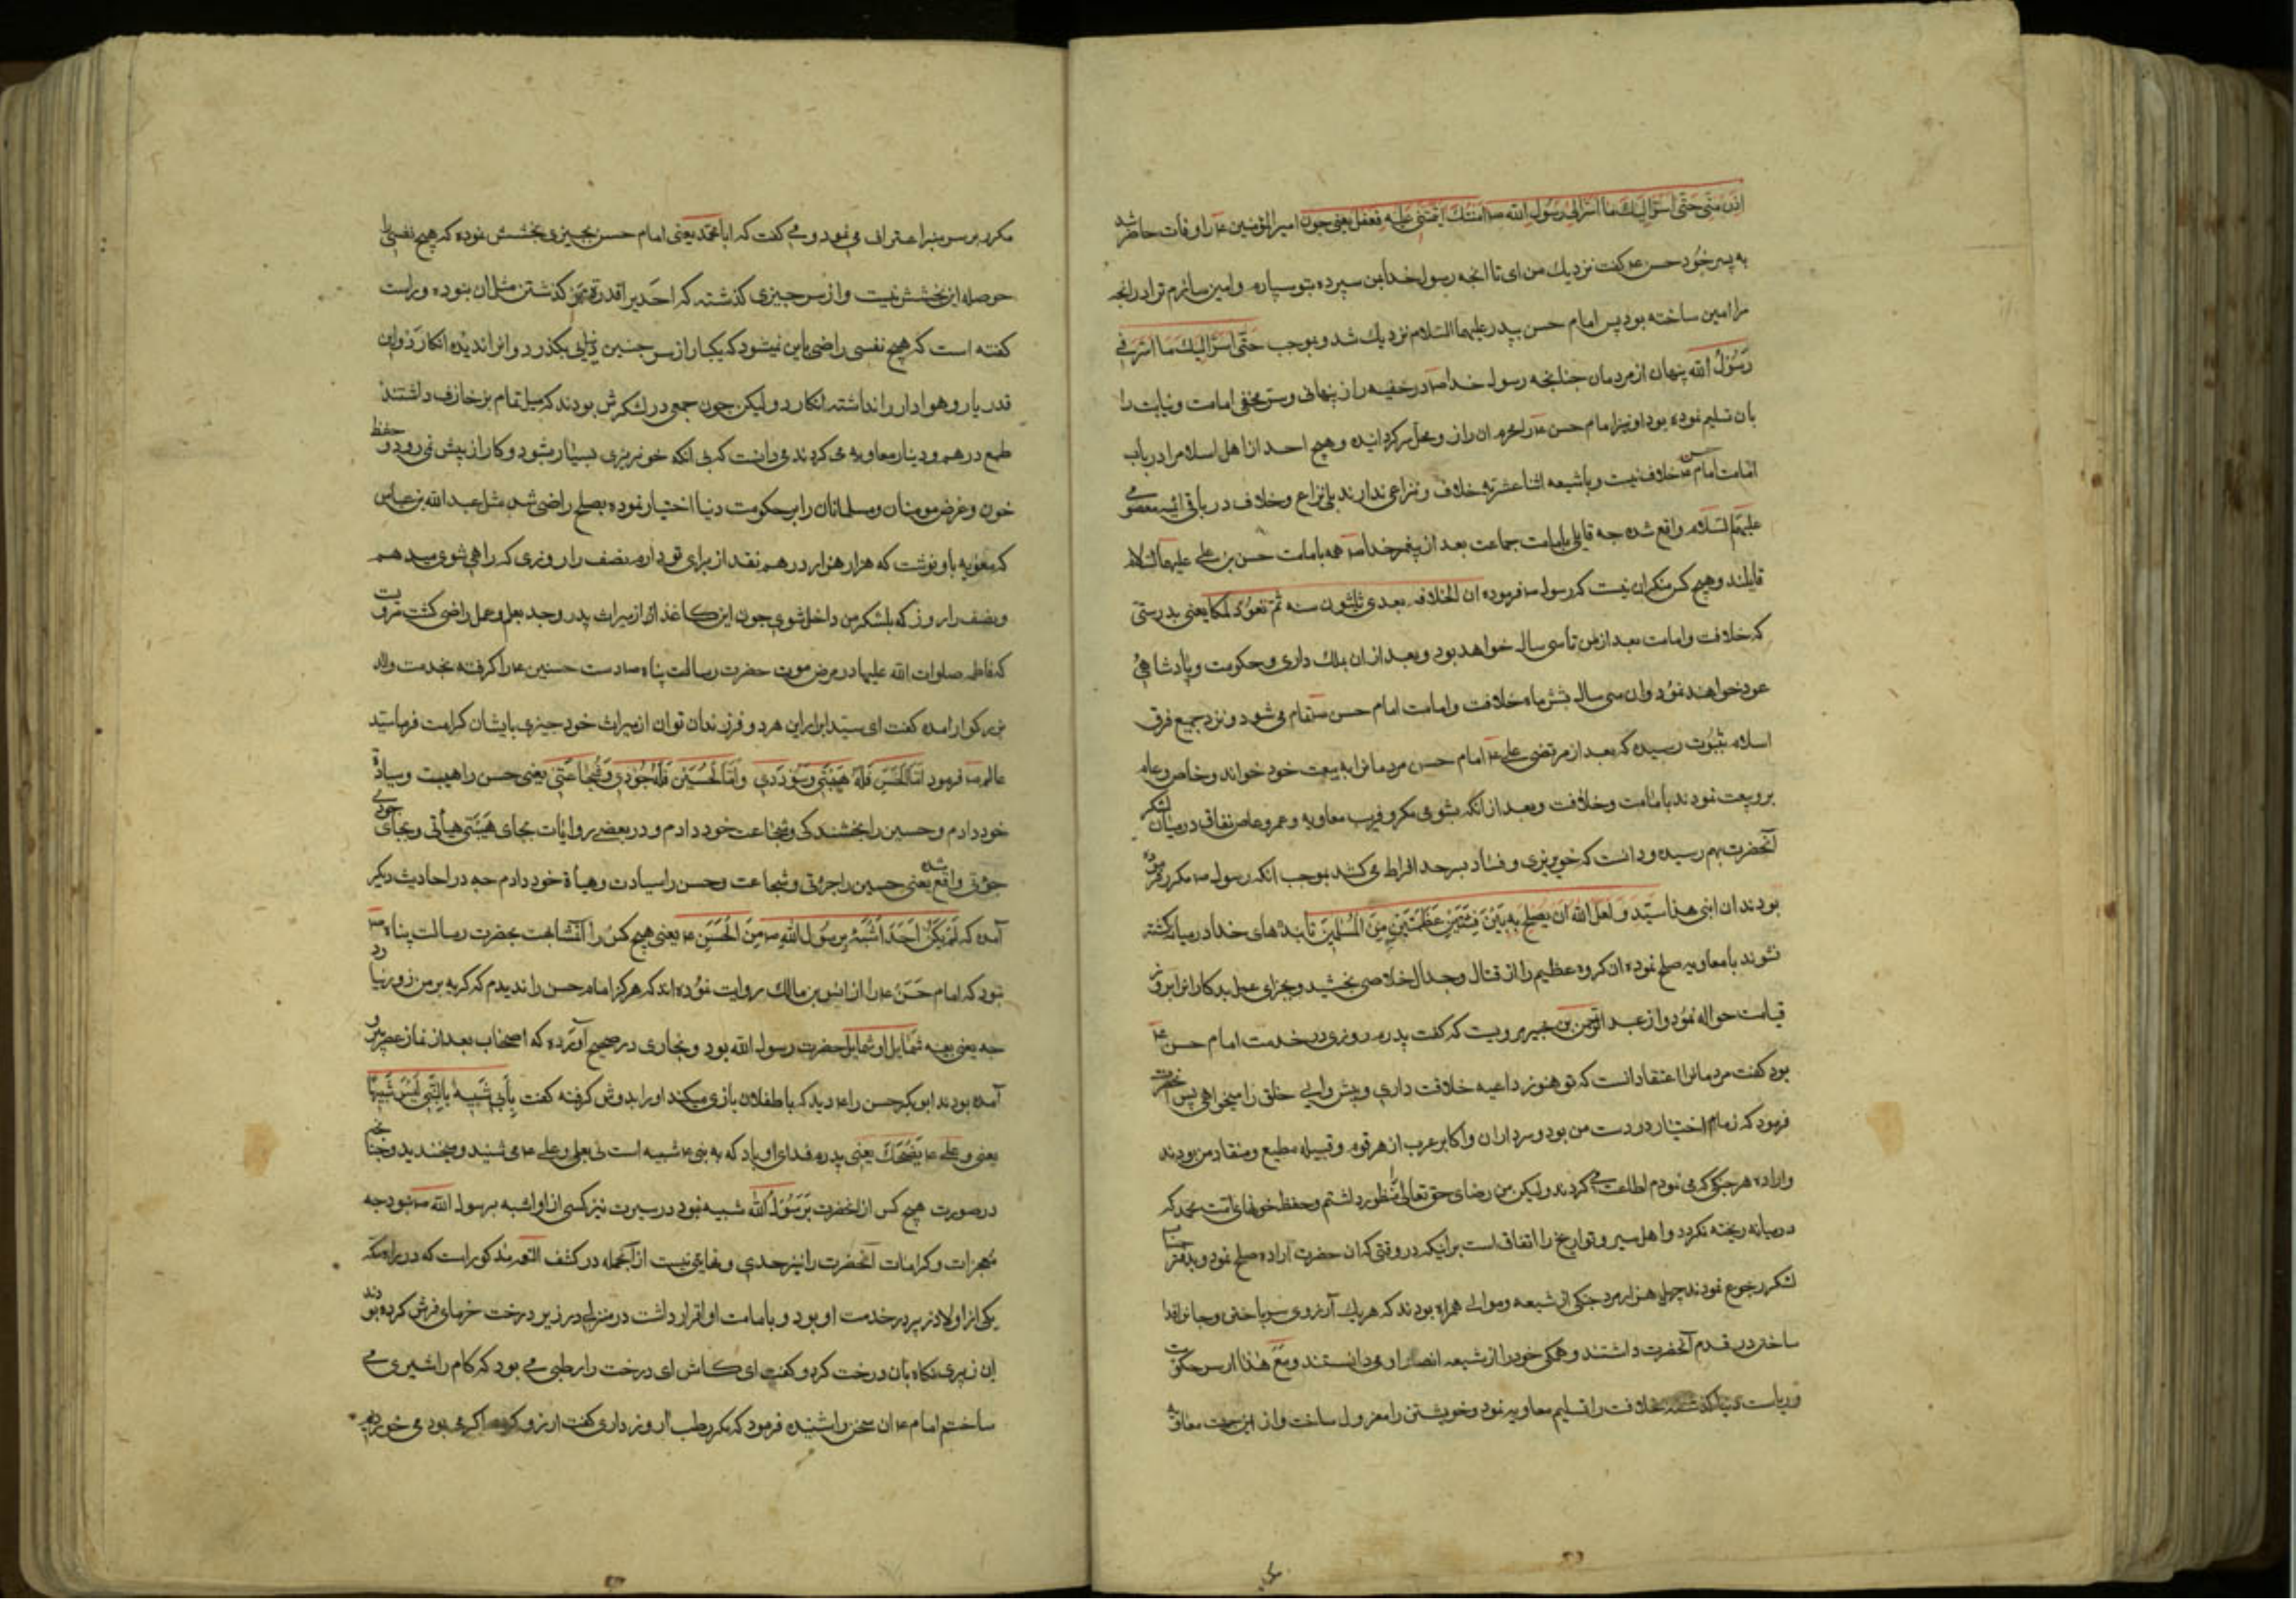 ادن منی حتی اسر الیک ما اسر الی رسول الله ص و ائتمنک ائتمننی علیه ففعل یعنی چون امیر المؤمنین ع را وفات حاضر شد
به پسر خود حسن ع کفت نزدیک من ای تا انجه رسول خدا بمن سپرده بتو سپارم و امین سازم ترا در انجه
مرا امین ساخته بود پس امام حسن بپدر علیهما السلام نزدیک شد و بموجب حتی اسر الیک ما اسر الی
رسول الله پنهان از مردمان جنانجه رسول خدا ص در خفیه راز پنهانی و سر مخفی امامت و نیابت را
بان تسلیم نموده بود او نیز امام حسن ع را محرم ان راز و محل سر کردانیده و هیج احد از اهل اسلام را در باب
امامت امام حسن ع خلاف نیست و با شیعه اثنا عشریه خلاف و نزاعی ندارند بلی نزاع و خلاف در باقی ائمه معصومی
علیهم السلام واقع شده جه قایل بامامت جماعت بعد از پیغمر خدا ص همه بامامت حسن بن علی علیهما السلام
قایلند و هیج کس منکر ان نیست که رسول ص فرموده ان الخلافه بعدی ثلثون سنه ثم تعود ملکا یعنی بدرستی
که خلافت و امامت بعد از من تا سی سال خواهد بود و بعد از ان بملک داری و حکومت و پادشاهی
عود خواهند نمود و ان سی سال بشش ماه خلافت و امامت امام حسن ع تمام می شود و نزد جمیع فرق
اسلام بثبوت رسیده که بعد از مرتضی علی ع امام حسن مردمانرا به بیعت خود خواند و خاص و عام
برو بیعت نمودند بامامت و خلافت و بعد از انکه بشومی مکر و فریب معاویه و عمرو عاص نفاق در میان لشکر
آنحضرت بهم رسیده و دانست که خونریزی و فساد بسرحد افراط می کشد بموجب انکه رسول ص مکرر فرموده
بودند ان ابنی هذا سید و لعل الله ان یصلح به بین فئتین عظیمتین من المسلمین تا بندهای خدا در میان کشته
نشوند با معاویه صلح نموده ان کروه عظیم را از قتال و جدال خلاصی بخشید و جزای عمل بدکارانرا بروز
قیامت حواله نمود و از عبد الرحمن بن جبیر مرویست که کفت پدرم روزی در خدمت امام حسن ع
بود کفت مردمانرا اعتقاد انست که تو هنوز داعیه خلافت داری و پیش وایی خلق را میخواهی پس آنحضرت
فرمود که زمام اختیار در دست من بود و سرداران و اکابر عرب از هر قوم و قبیله مطیع و منقاد من بودند
و اراده هر جیز که می نمودم اطاعت می کردند و لیکن من رضای حق تعالی را منظور داشتم و حفظ خونهای امت محمد که
در میانه ریخته نکردد و اهل سیر و تواریخ را اتفاق است بر اینکه در وقتی که ان حضرت اراده صلح نمود و بدفتر
لشکر رجوع نمودند چهل هزار مرد جنکی از شیعه و موالی همراه بودند که هر یک آرزوی سر باختن و جانرا فدا
ساختن در قدم آنحضرت داشتند و همکی خود را از شیعه انصار او می دانستند و مع هذا از سر حکومت
و ریاست خلافت را تسلیم معاویه نمود و خویشتن را معزول ساخت و از این جهت معاویه
مکرر بر سر منبر اعتراف می نمود و می کفت که ابا محمد یعنی امام حسن بجیزی بخشش نموده که هیج نفسی را
حوصله این بخشش نیست و از سر جیزی کذشته که احدیرا قدرت بر کذشتن مثل ان نبوده و راست
کفته است که هیج نفسی راضی باین نمیشود که یکبار از سر جنین بکذرد و انرا ندیده انکارد و این
قدر یار و هوادار را نداشته انکارد و لیکن چون جمعی در لشکرش بودند که میل تمام بزخارف داشتند
طمع در هم و دینار معاویه می کردند می دانست که بی انکه خونریزی بسیار بشود و کار از پیش نمی رود و حفظ
خون و عرض مومنان و مسلمانان را بر حکومت دنیا اختیار نموده بصلح راضی شد مثل عبد الله بن عباس
که معویه باو نوشت که هزار هزار درهم نقد از برای تو دارم نصف را روزی که راهی شوی میدهم
و نصف را روز که بلشکر من داخل شوی جون این کاغذ از میراث پدر و جد بعلم و عمل راضی کشت مرویست
که فاطمه صلوات الله علیها در مرض موت حضرت رسالت پناه ص دست حسنین ع را کرفته بخدمت والد
بزرکوار امده کفت ای سید ابرار این هر دو فرزندان توان از میراث خود جیزی بایشان کرامت فرما سید
عالم ص فرمود اما الحسن فله هیبتی و سوددی و اما الحسین فله جودی و شجاعتی یعنی حسن را هیبت و سیادة
خود دادم و حسین را بخشندکی و شجاعت خود دادم و در بعضی روایات بجای هیبتی هیأتی و بجای جودی
جرٔتی واقع شده یعنی حسین را جرٔتی و شجاعت و حسن را سیادت و هیأة خود دادم جه در احادیث دیکر
آمده که لم یکن احدا اشبه برسول الله ص من الحسن ع یعنی هیج کس را آن مشابهت بحضرت رسالت پناه ص
نبود که امام حسن ع را از انس بن مالک روایت نموده اند که هرکز امام حسن را ندیدم که کریه بر من زور نیاورد
جه یعنی بعینه شمایل او شمایل حضرت رسول الله بود و بخاری در صحیح آورده که اصحاب بعد از نماز عصر بیرون
آمده بودند ابو بکر حسن را ع دید که با طفلان بازی میکند او را بدوش کرفته کفت بابی شبیه بالنبی لیس شبیها
یعنی و علی ع یضحک یعنی پدرم فدای او باد که به نبی ع شبیه است نی بعلی و علی ع می شنید و میخندید و جنانجه
در صورت هیچ کس از آنحضرت برسول الله شبیه نبود در سیرت نیز کسی از او اشبه برسول الله ص نبود جه
معجزات و کرامات آنحضرت را نیز حدی و نهایتی نیست از آنجمله در کشف الغمه مذکور است که در راه مکه
یکی از اولاد زبیر در خدمت او بود و بامامت او اقرار داشت در منزلی در زیر درخت خرمای فرش کرده بودند
ان زبیری نکاه بان درخت کرد و کفت ای کاش ای درخت را رطبی می بود که کام را شیری می
ساختم امام ع ان سخن را شنیده فرمود که مکر رطب آرزو داری کفت آرزو اکر می بود می خوردم